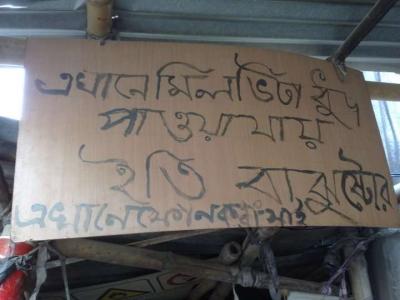 এখানে মিলভিটা দুধ
পাওয়া যায়
ইতি বাবু ষ্টোর
এখানে ফোন করা যাই